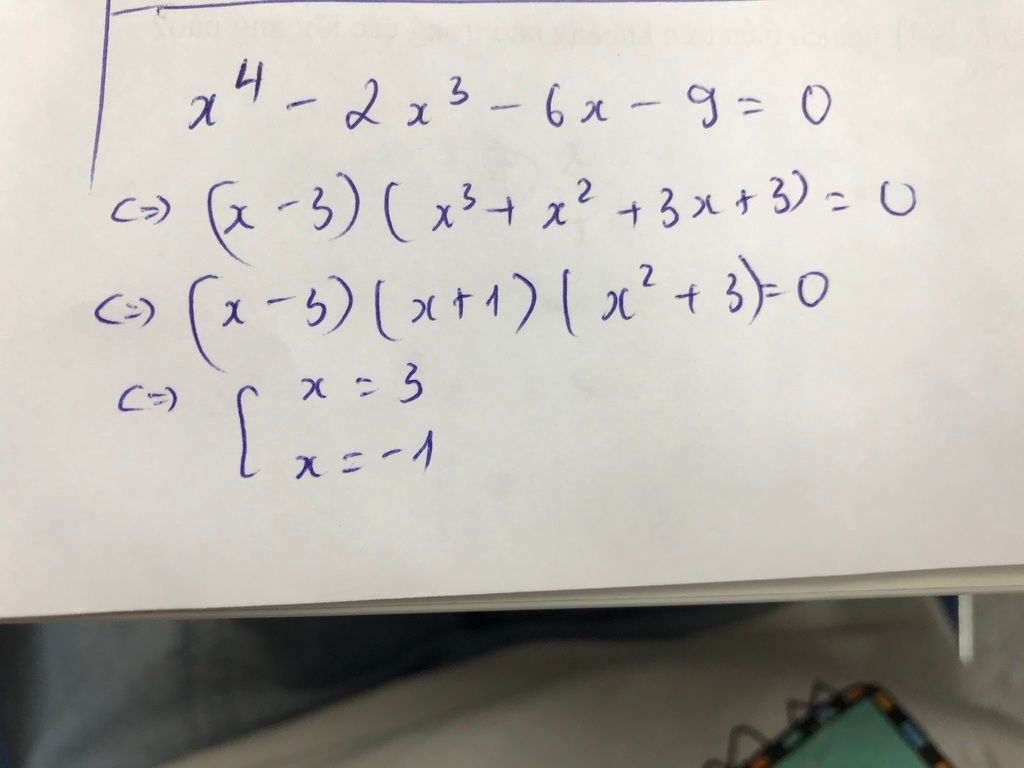 x⁴ - 2x³ - 6x - 9 = 0
<=> (x - 3)(x³ + x² + 3x + 3) = 0
<=> (x - 3)(x + 1)(x² + 3) = 0
<=> [ x = 3
x = -1